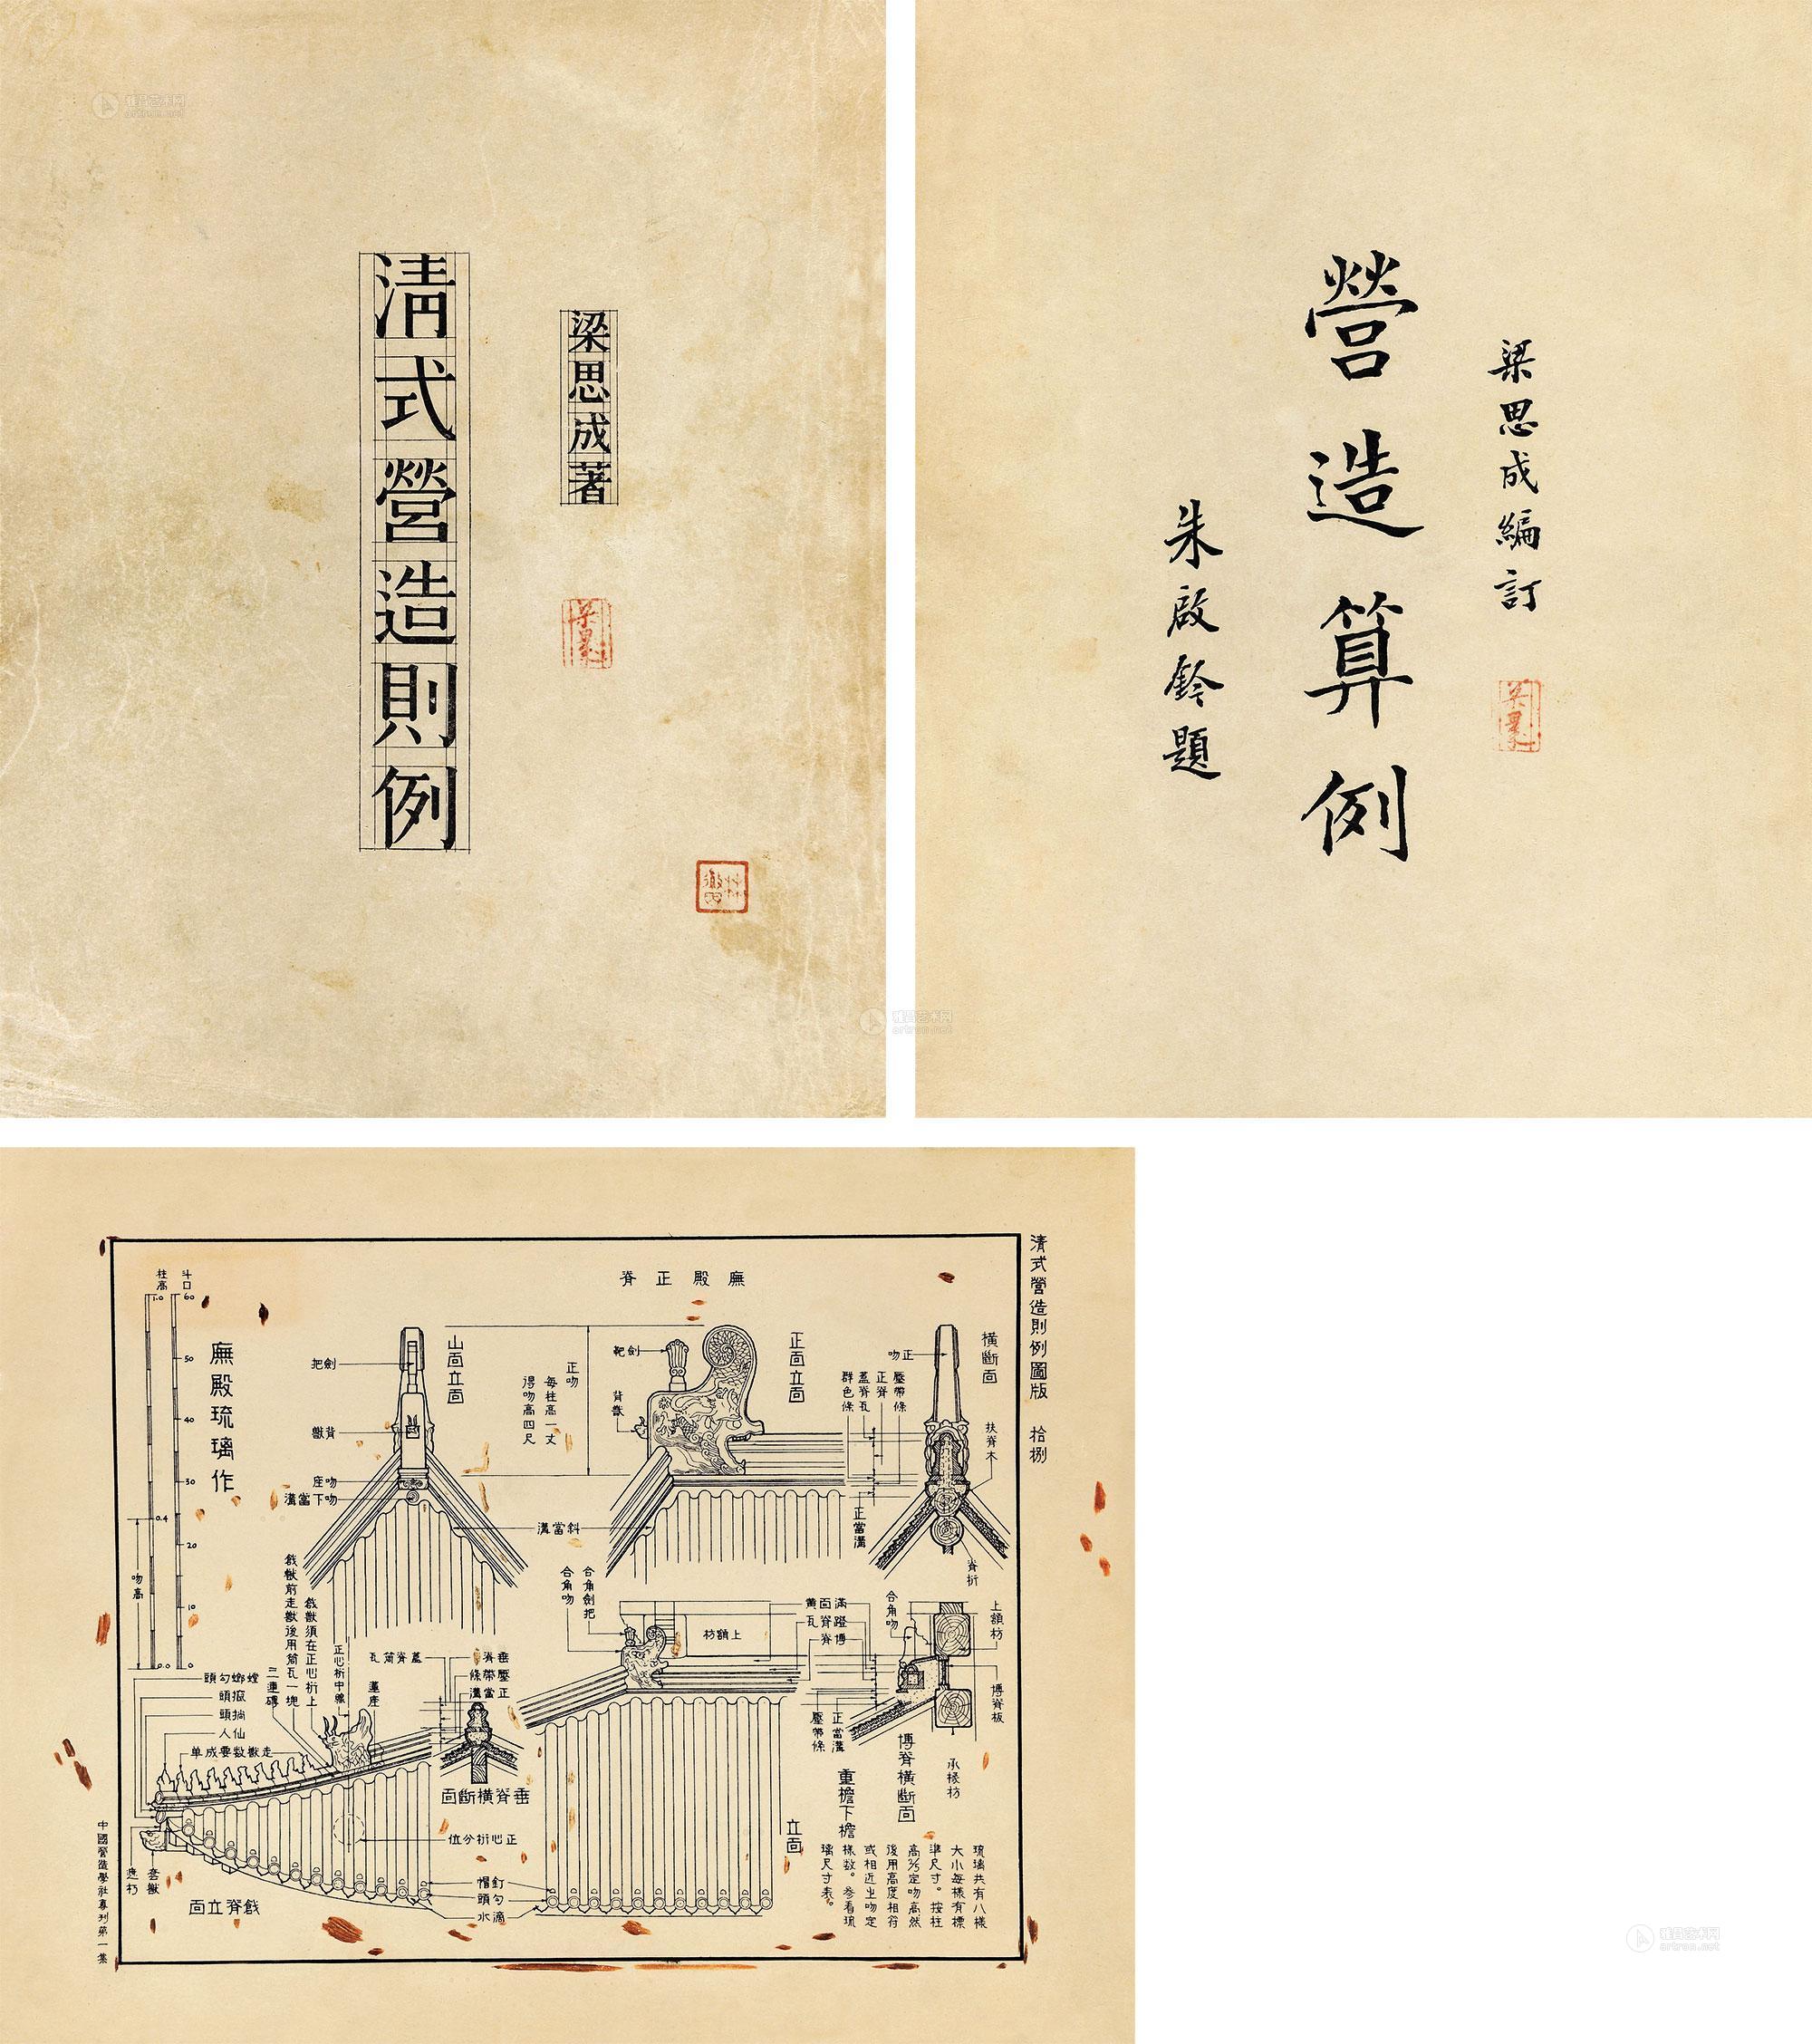 梁思成著
清式營造則例
梁思成編訂
營造算例
朱啟鈐題
清式營造則例圖版 拾捌
廡殿正脊
橫斷面
正吻
壓帶條
正脊
蓋脊瓦
群色條
扶脊木
正當溝
脊桁
正面立面
劍靶
背獸
正吻
每柱高一丈
得吻高四尺
山面立面
劍把
背獸
吻座
吻下當溝
斜當溝
廡殿琉璃作
斗口
柱高
60
50
40
30
20
10
0
1.0
0.4
0.0
吻高
合角劍把
合角吻
上額枋
滿面黃
蹬脊瓦
博脊
合角吻
上額枋
博脊板
承椽枋
壓帶條
正當溝
博脊橫斷面
重檐下檐
立面
蓋脊筒瓦
垂脊
壓帶條
正當溝
垂脊橫斷面
戧獸前走獸後用筒瓦一塊
戧獸須在正心桁上
正心桁中線
蓮座
三連磚
螳螂勾頭
𢷎頭
㨂頭
仙人
走獸數要成单
正心桁分位
釘帽
勾頭
滴水
套獸
戧脊立面
琉璃共有八樣
大小每樣有標
準尺寸。按柱
高⅖定吻高然
後用高度相符
或相近之吻定
樣数。參看琉
璃尺寸表。
中國營造學社專刊第一集
雅昌艺术网
artron.net